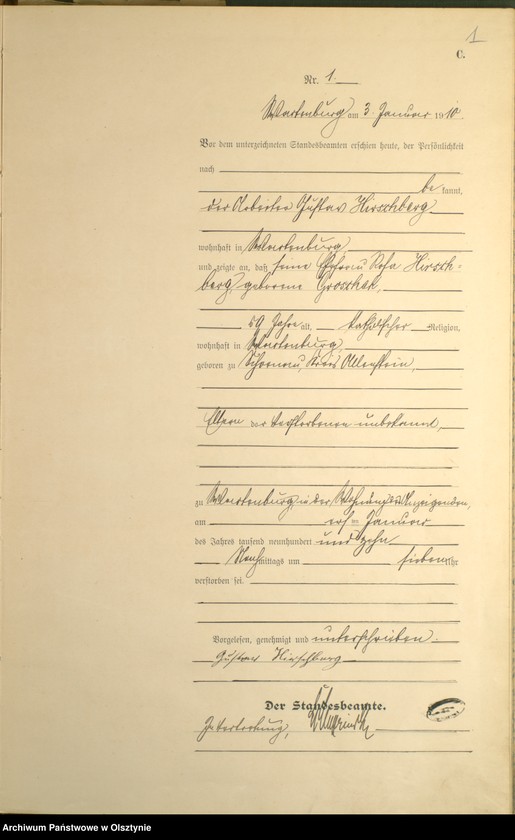 1
C.
Nr. 1.
Wartenburg am 3. Januar 1910.
Vor dem unterzeichneten Standesbeamten erschien heute, der Persönlichkeit
nach
bekannt,
der Arbeiter Gustav Hirschberg
wohnhaft in Wartenburg,
und zeigte an, daß seine Ehefrau Rosa Hirsch-
berg, geborene Groschak,
59 Jahre alt, katholischer Religion,
wohnhaft in Wartenburg,
geboren zu Schoenau, Kreis Allenstein,
Eltern der Verstorbenen unbekannt,
zu Wartenburg, in der Wohnung des Anzeigenden,
am ersten Januar
des Jahres tausend neunhundert und zehn
Nachmittags um sieben Uhr
verstorben sei.
Vorgelesen, genehmigt und unterschrieben.
Gustav Hirschberg
Der Standesbeamte.
In Vertretung,
Archiwum Państwowe w Olsztynie